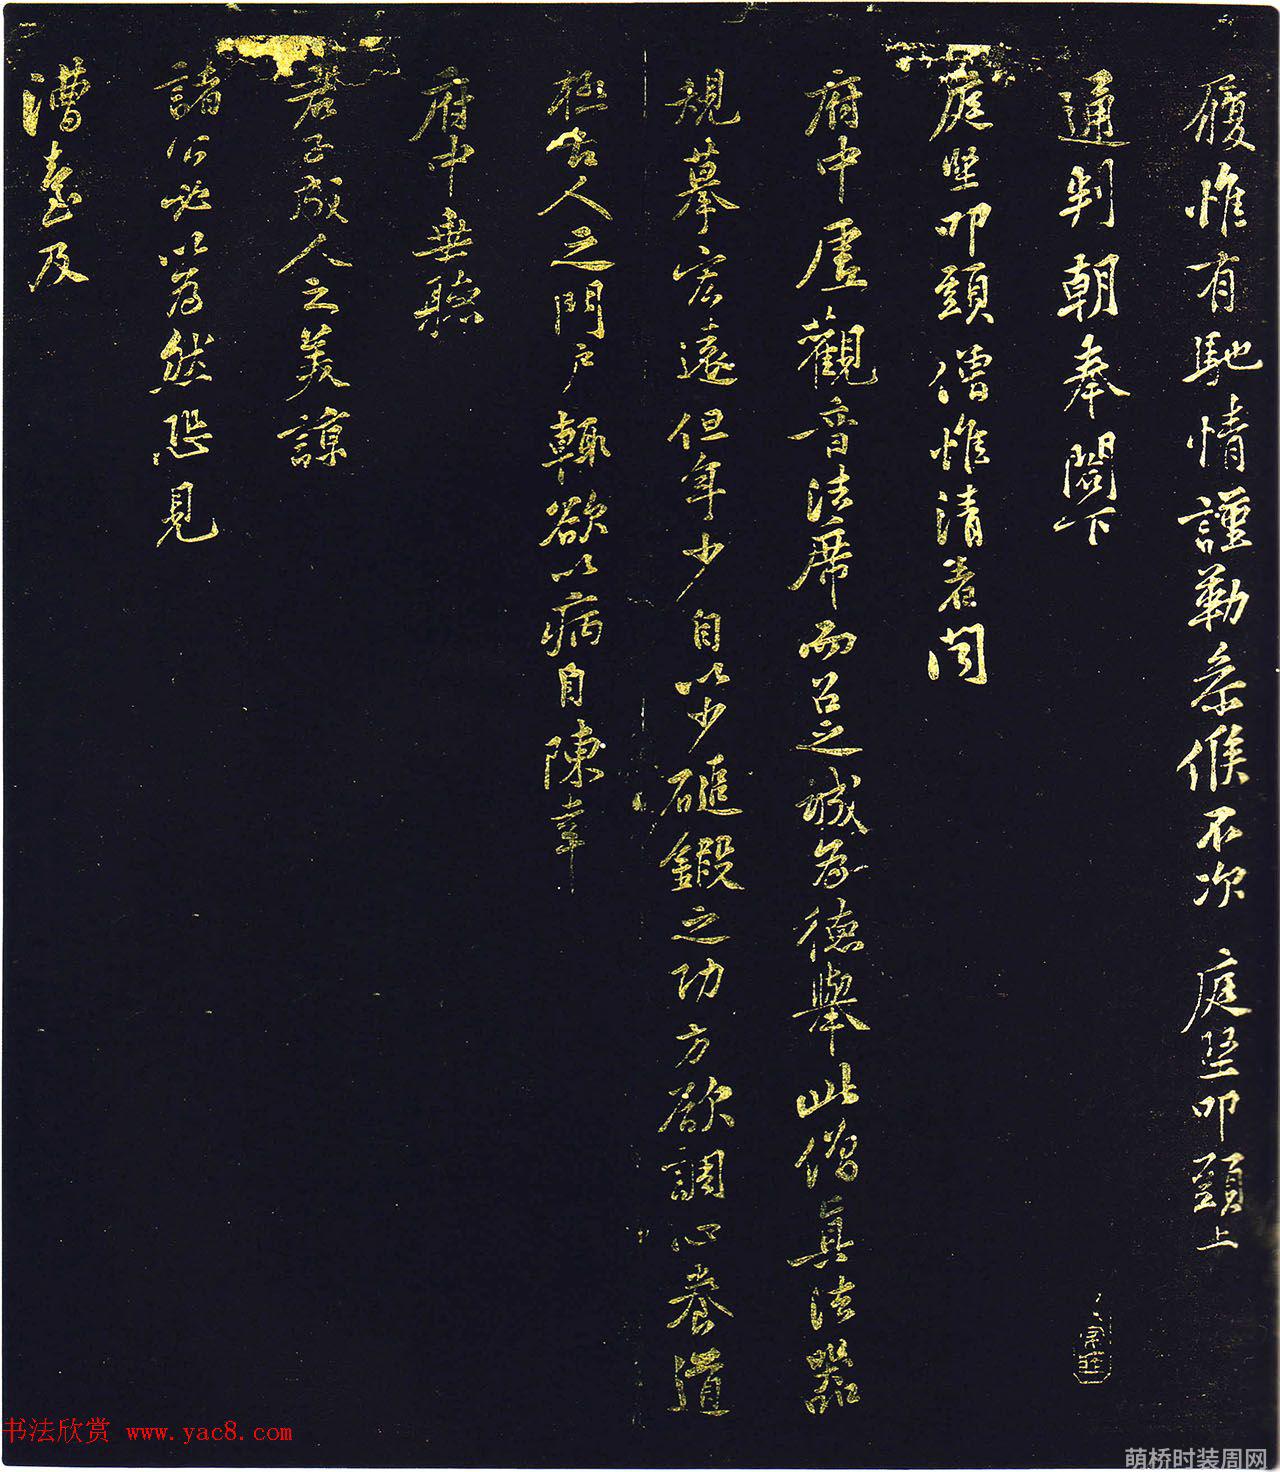 履惟有馳情謹勒參候不次 庭堅叩頭上
通判朝奉閤下
庭堅叩頭僧惟清者聞
府中虛觀音法席而召之誠為德舉此僧真法器
規摹宏遠但年少自以少磓鍛之功方欲調心養道
極古人之門戶輒欲以病自陳幸
府中垂聽
君子成人之美諒
諸公必以為然恐見
漕臺及
书法欣赏 www.yac8.com
萌桥时装周网